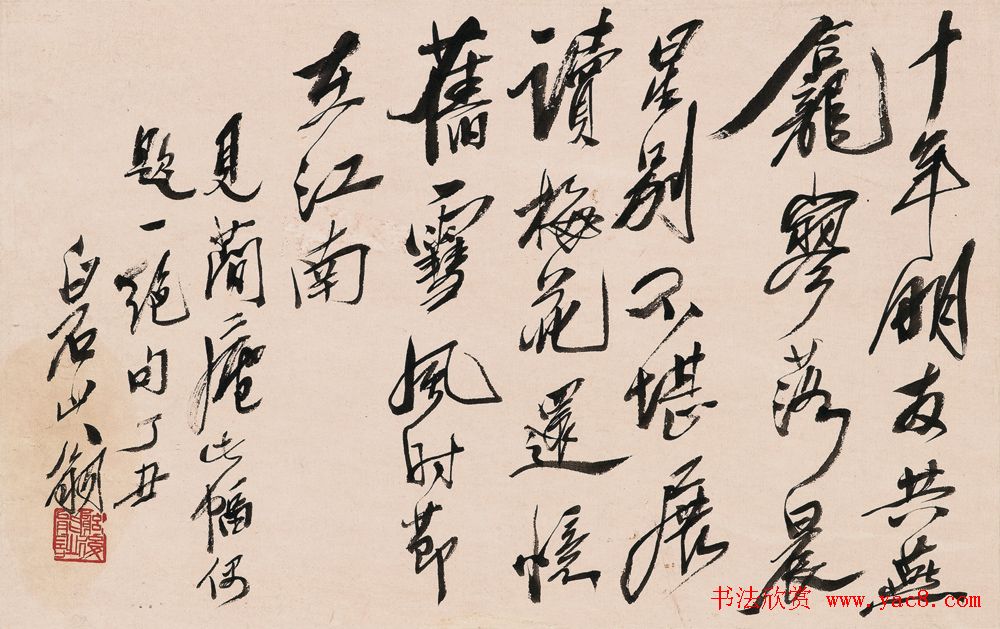 十年朋友共燕
龕寥落晨
星別不堪展
讀梅花還憶
舊雪風時節
在江南
見蕳庵此幅偶
題一絕句丁丑
白石山翁
书法欣赏 www.yac8.com